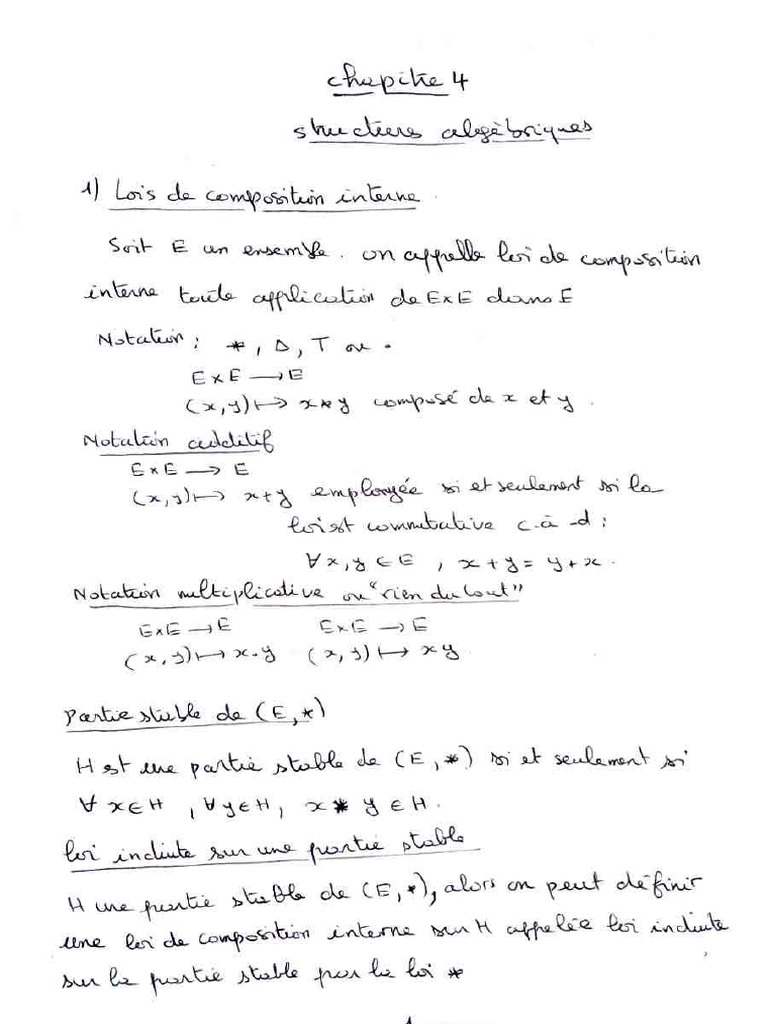 chapitre 4
structures algébriques
1) Lois de composition interne.
Soit E un ensemble. on appelle loi de composition
interne toute application de E×E dans E
Notation : *, Δ, T ou .
E×E → E
(x,y) ↦ x*y composé de x et y.
Notation additif
E×E → E
(x,y) ↦ x+y employée si et seulement si la
loi est commutative c.à-d :
∀x,y ∈ E , x+y = y+x.
Notation multiplicative ou "rien du tout"
E×E → E E×E → E
(x,y) ↦ x.y (x,y) ↦ xy.
Partie stable de (E,*)
H est une partie stable de (E,*) si et seulement si
∀ x∈H , ∀y∈H, x * y ∈ H.
loi induite sur une partie stable
H une partie stable de (E,*), alors on peut définir
une loi de composition interne sur H appelée loi induite
sur la partie stable par la loi *